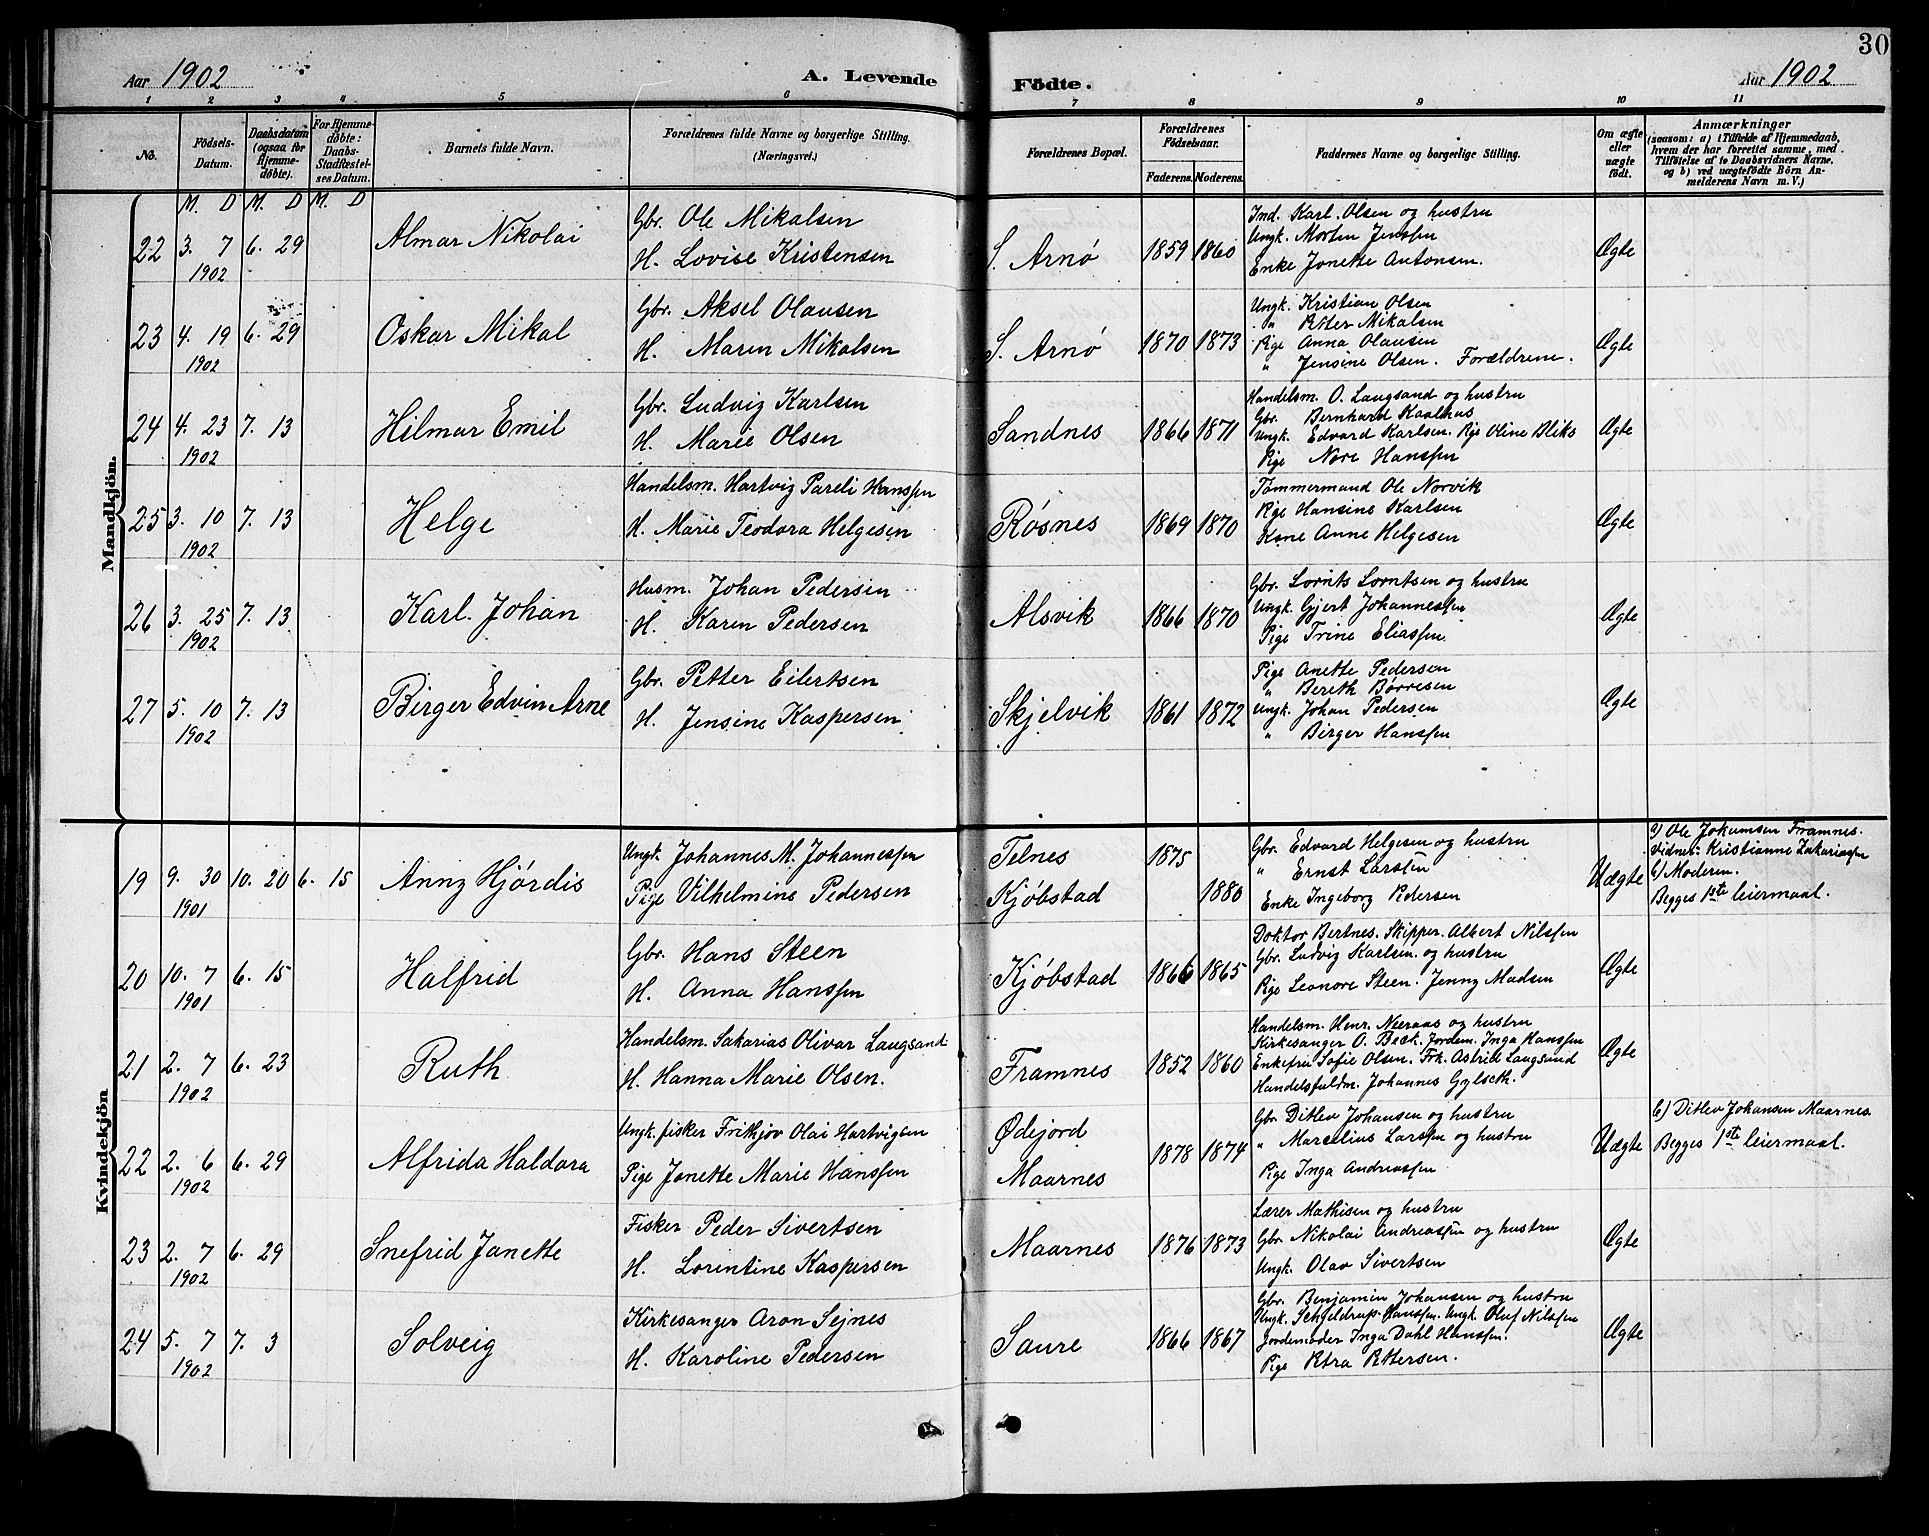 30
Aar 1902 A. Levende Födte. Aar 1902
1 2 3 4 5 6 7 8 9 10 11
No.
Födsels-Datum.
Daabsdatum (ogsaa for Hjemme-døbte).
For Hjemme-døbte: Daabs-Stadfæstel-ses Datum.
Barnets fulde Navn.
Forældrenes fulde Navne og borgerlige Stilling.
(Næringsvei.)
Forældrenes Bopæl.
Forældrenes Födselsaar.
Faderens. Moderens.
Faddernes Navne og borgerlige Stilling.
Om ægte eller uægte födt.
Anmærkninger
(saasom: a) i Tilfælde af Hjemmedaab,
hvem der har forrettet samme, med
Tilföielse af to Daabsvidners Navne.
og b) ved uægtefödte Börn An-
melderens Navn m. V.)
M. D M. D M. D
Mandkjön.
22 3. 7 1902 6. 29 Almar Nikolai
Gbr. Ole Mikalsen
H. Lovise Kristensen
S. Arnø 1859 1860
Ind. Karl Olsen og hustru
Ungk. Morten Jenssen
Enke Jonette Antonsen.
Ægte
23 4. 19 1902 6. 29 Oskar Mikal
Gbr. Aksel Olausen
H. Maren Mikalsen
S. Arnø 1870 1873
Ungk. Kristian Olsen
" Petter Mikalsen
Pige Anna Olausen
" Jensine Olsen. Forældrene.
Ægte
24 4. 23 1902 7. 13 Hilmar Emil
Gbr. Ludvig Karlsen
H. Marie Olsen
Sandnes 1866 1871
Handelsm. O. Laugsand og hustru
Gbr. Bernhard Kaalhus
Ungk. Edvard Karlsen. Pige Oline Bliks
Pige Nore Hanssen
Ægte
25 3. 10 1902 7. 13 Helge
Handelsm. Hartvig Pareli Hanssen
H. Marie Teodora Helgesen
Røsnes 1869 1870
Tømmermand Ole Norvik
Pige Hansine Karlsen
Kone Anne Helgesen
Ægte
26 3. 25 1902 7. 13 Karl Johan
Husm. Johan Pedersen
H. Karen Pedersen
Alsvik 1866 1870
Gbr. Lornts Lorntsen og hustru
Ungk. Gjert Johannessen
Pige Trine Eliassen
Ægte
27 5. 10 1902 7. 13 Birger Edvin Arne
Gbr. Petter Eilertsen
H. Jensine Kaspersen
Skjelvik 1861 1872
Pige Anette Pedersen
" Bereth Børresen
Ungk. Johan Pedersen
" Birger Hanssen
Ægte
Kvindekjön
19 9. 30 1901 10. 20 6. 15 Anny Hjórdis
Ungk. Johannes M. Johannessen
Pige Vilhelmine Pedersen
Telnes 1875
Kjøbstad 1880
Gbr. Edvard Helgesen og hustru
" Ernst Larsen
Enke Ingeborg Pedersen
Uægte
a) Ole Jokumsen Framnes.
Vidner: Kristianne Zakariassen
b) Moderen.
Begges 1ste leiermaal.
20 10. 7 1901 6. 15 Halfrid
Gbr. Hans Steen
H. Anna Hanssen
Kjøbstad 1866 1865
Doktor Bertnes. Skipper Albert Nilssen
Gbr. Ludvig Karlsen og hustru
Pige Leonore Steen. Jenny Madsen
Ægte
21 2. 7 1902 6. 23 Ruth
Handelsm. Sakarias Olivar Laugsand
H. Hanna Marie Olsen.
Framnes 1852 1860
Handelsm. Henr. Næraas og hustru
Kirkesanger O. Beck. Jordem. Inga Hanssen
Enkefru Sofie Olsen. Frk. Astrid Laugsand
Handelsfuldm. Johannes Gylseth.
Ægte
22 2. 6 1902 6. 29 Alfrida Haldora
Ungk. fisker Frithjov Olai Hartvigsen
Pige Jonette Marie Hanssen
Ødejord
Maarnes 1878 1874
Gbr. Ditlev Johansen og hustru
" Marcelius Larssen og hustru
Pige Inga Andreassen
Uægte
b) Ditlev Johansen Maarnes
Begges 1ste leiermaal.
23 2. 7 1902 6. 29 Snefrid Janette
Fisker Peder Sivertsen
H. Lorentine Kaspersen
Maarnes 1876 1873
Lærer Mathisen og hustru
Gbr. Nikolai Andreassen og hustru
Ungk. Olav Sivertsen
Ægte
24 5. 7 1902 7. 3 Solveig
Kirkesanger Aron Sejnes
H. Karoline Pedersen
Saure 1866 1867
Gbr. Benjamin Johansen og hustru
Ungk. Schjeldrup Hanssen. Ungk. Oluf Nilssen
Jordemoder Inga Dahl Hanssen.
Pige Petra Pettersen.
Ægte